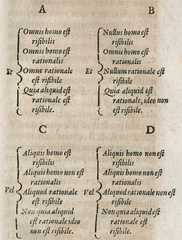 A
Omnis homo est
risibilis
Omnis homo est
rationalis
Et
Omne rationale
est risibile
Quia aliquid est
rationale, est
risibile.
B
Nullus homo est
risibilis
Omnis homo est
rationalis
Et
Nullum rationale est
risibile
Quia aliquid est
rationale, ideo non
est risibile.
C
Aliquis homo est
risibilis
Aliquis homo non est
rationalis
Vel
Aliquod rationale
est risibile
Non quia aliquid
est rationale ideo
non est risibile.
D
Aliquis homo non est
risibilis
Aliquis homo non est
rationalis
Vel
Aliquod rationale non est
risibile
Non quia aliquid est
rationale, ideo est
risibile.